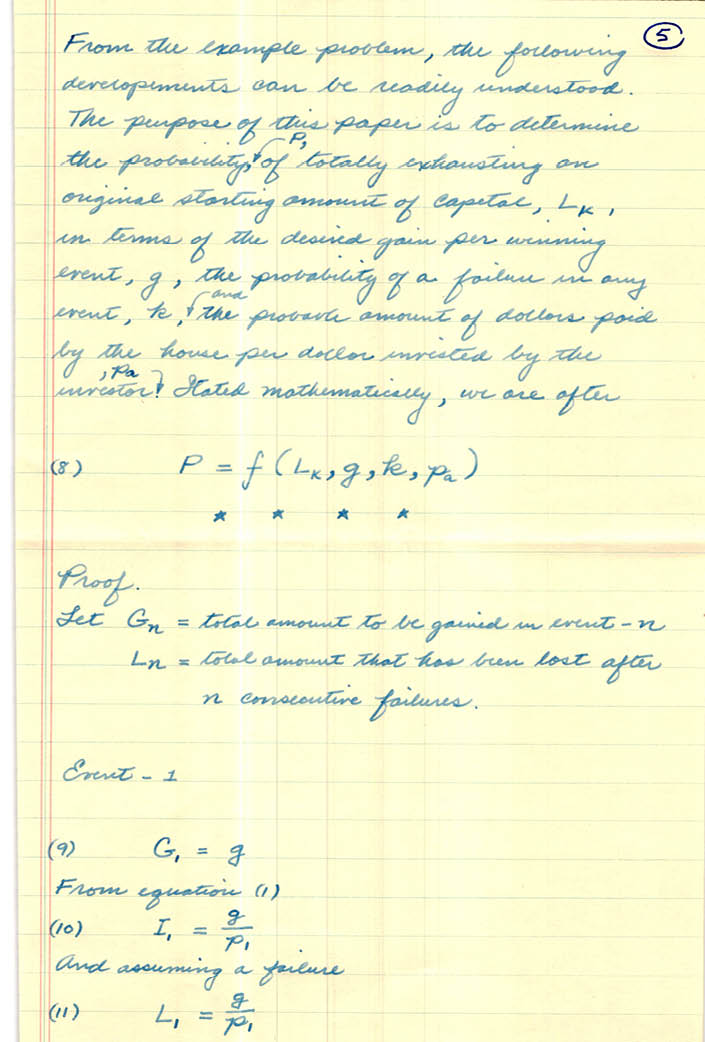 5
From the example problem, the following
developements can be readily understood.
The purpose of this paper is to determine
the probability, P, of totally exhausting an
original starting amount of capital, L_K,
in terms of the desired gain per winning
event, g, the probability of a failure in any
event, k, and the probable amount of dollars paid
by the house per dollar invested by the
investor, pa. Stated mathematically, we are after
(8) P = f(L_K, g, k, p_a)
* * * *
Proof.
Let G_n = total amount to be gained in event-n
L_n = total amount that has been lost after
n consecutive failures.
Event - 1
(9) G_1 = g
From equation (1)
(10) I_1 = g/p_1
And assuming a failure
(11) L_1 = g/p_1